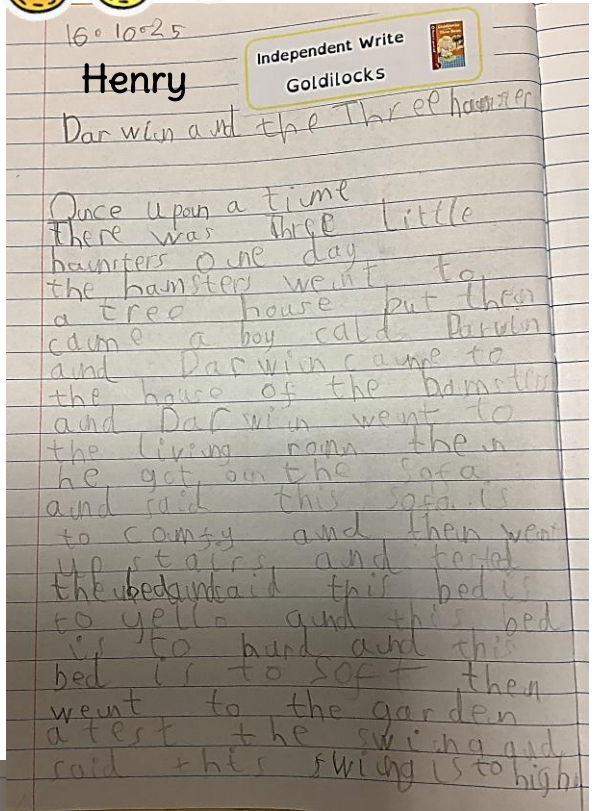 16.10.25
Independent Write
Goldilocks
Henry
Darwin and the Three hamster
Once upon a time
there was three little
hamsters one day
the hamsters went to
a tree house but then
came a boy cald Darwin
and Darwin came to
the house of the hamsters
and Darwin went to
the living room then
he got on the sofa
and said this sofa is
to comfy and then went
up stairs and tested
the bed and said this bed is
to yello and this bed
is to hard and this
bed is to soft then
went to the garden
a test the swing and
said this swing is to high